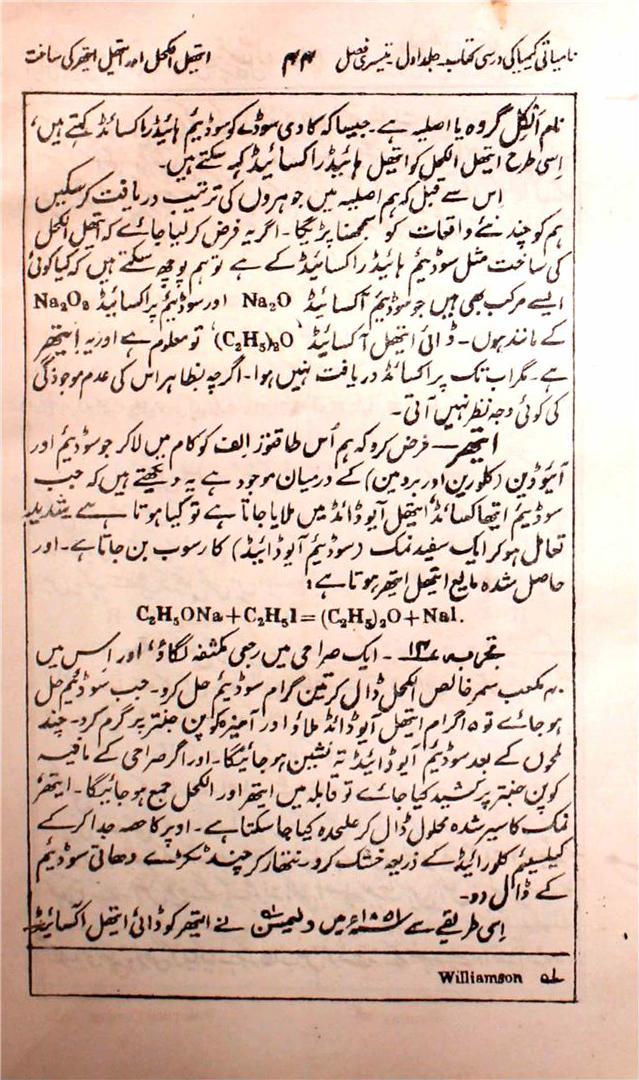 نامیاتی کیمیا کی درسی کتاب۔ جلد اول۔ تیسری فصل ۴۴ ایتھیل الکحل اور ایتھیل ایتھر کی ساخت
نام الکِل گروہ یا اصلیہ ہے۔ جیسا کہ کاوی سوڈے کو سوڈیئم ہائیڈراکسائڈ کہتے ہیں،
اِسی طرح ایتھل الکحل کو ایتھل ہائیڈراکسائیڈ کہہ سکتے ہیں۔
اِس سے قبل کہ ہم اصلیہ میں جوہروں کی ترتیب دریافت کر سکیں
ہم کو چند نئے واقعات کو سمجھنا پڑیگا۔ اگر یہ فرض کر لیا جائے کہ ایتھل الکحل
کی ساخت مثل سوڈیئم ہائیڈراکسائیڈ کے ہے تو ہم پوچھ سکتے ہیں کہ کیا کوئی
ایسے مرکب بھی ہیں جو سوڈیئم آکسائیڈ Na₂O اور سوڈیئم پراکسائیڈ Na₂O₂
کے مانند ہوں۔ ڈائی ایتھل آکسائیڈ ‘(C₂H₅)₂O’ تو معلوم ہے اور یہ اِیتھر
ہے۔ مگر اب تک پراکسائڈ دریافت نہیں ہوا۔ اگرچہ بظاہر اس کی عدم موجودگی
کی کوئی وجہ نظر نہیں آتی۔
ایتھر — فرض کرو کہ ہم اُس طاقتور اِلف کو کام میں لا کر جو سوڈیئم اور
آیوڈین (کلورین اور برومین) کے درمیان موجود ہے یہ دیکھتے ہیں کہ جب
سوڈیئم ایتھاکسائڈ ایتھل آیوڈائڈ میں ملایا جاتا ہے تو کیا ہوتا ہے شدید
تعامل ہو کر ایک سفید نمک (سوڈیئم آیوڈائیڈ) کا رسوب بن جاتا ہے۔ اور
حاصل شدہ مایع ایتھل ایتھر ہوتا ہے:
C₂H₅ONa+C₂H₅I=(C₂H₅)₂O+NaI.
تجربہ ۱۳ ۔ ایک صراحی میں رجعی مکثفہ لگاؤ، اور اِس میں
۴۰ مکعب سمر خالص الکحل ڈال کر تین گرام سوڈیئم حل کرو۔ جب سوڈیئم حل
ہو جائے تو ۱۵ گرام ایتھل آیوڈائڈ ملاؤ اور آمیزہ کو پن جنتر پر گرم کرو۔ چند
لمحوں کے بعد سوڈیئم آیوڈائیڈ تہ نشین ہو جائیگا۔ اور اگر صراحی کے مافیہ
کو پن جنتر پر کشید کیا جائے تو قابلہ میں ایتھر اور الکحل جمع ہو جائیگا۔ ایتھر
نمک کا سیر شدہ محلول ڈال کر علیحدہ کیا جا سکتا ہے۔ اوپر کا حصہ جدا کر کے
کیلسیئم کلورائیڈ کے ذریعہ خشک کرو۔ نتھار کر چند ٹکڑے دھاتی سوڈیئم
کے ڈال دو۔
اِسی طریقے سے ۱۸۵۱ء میں ولیمسن ؎۱ نے ایتھر کو ڈائی ایتھل آکسائیڈ
؎۱ Williamson